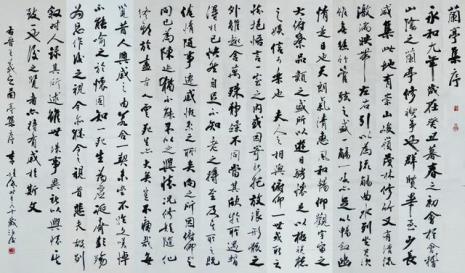 蘭亭集序
永和九年歲在癸丑暮春之初會於會稽
山陰之蘭亭修禊事也群賢畢至少長
咸集此地有崇山峻領茂林修竹又有清流
激湍映帶左右引以為流觴曲水列坐其次
雖無絲竹管弦之盛一觴一詠亦足以暢敘幽
情是日也天朗氣清惠風和暢仰觀宇宙之
大俯察品類之盛所以遊目騁懷足以極視聽
之娛信可樂也夫人之相與俯仰一世或取
諸懷抱悟言一室之內或因寄所託放浪形骸之
外雖趣舍萬殊靜躁不同當其欣於所遇暫
得於己快然自足不知老之將至及其所之既
倦情隨事遷感慨係之矣向之所欣俛仰之
間已為陳迹猶不能不以之興懷況修短隨化
終期於盡古人云死生亦大矣豈不痛哉每
覽昔人興感之由若合一契未嘗不臨文嗟悼
不能喻之於懷固知一死生為虛誕齊彭殤
為妄作後之視今亦猶今之視昔悲夫故列
敘時人錄其所述雖世殊事異所以興懷其
致一也後之覽者亦將有感於斯文
蘭亭集序